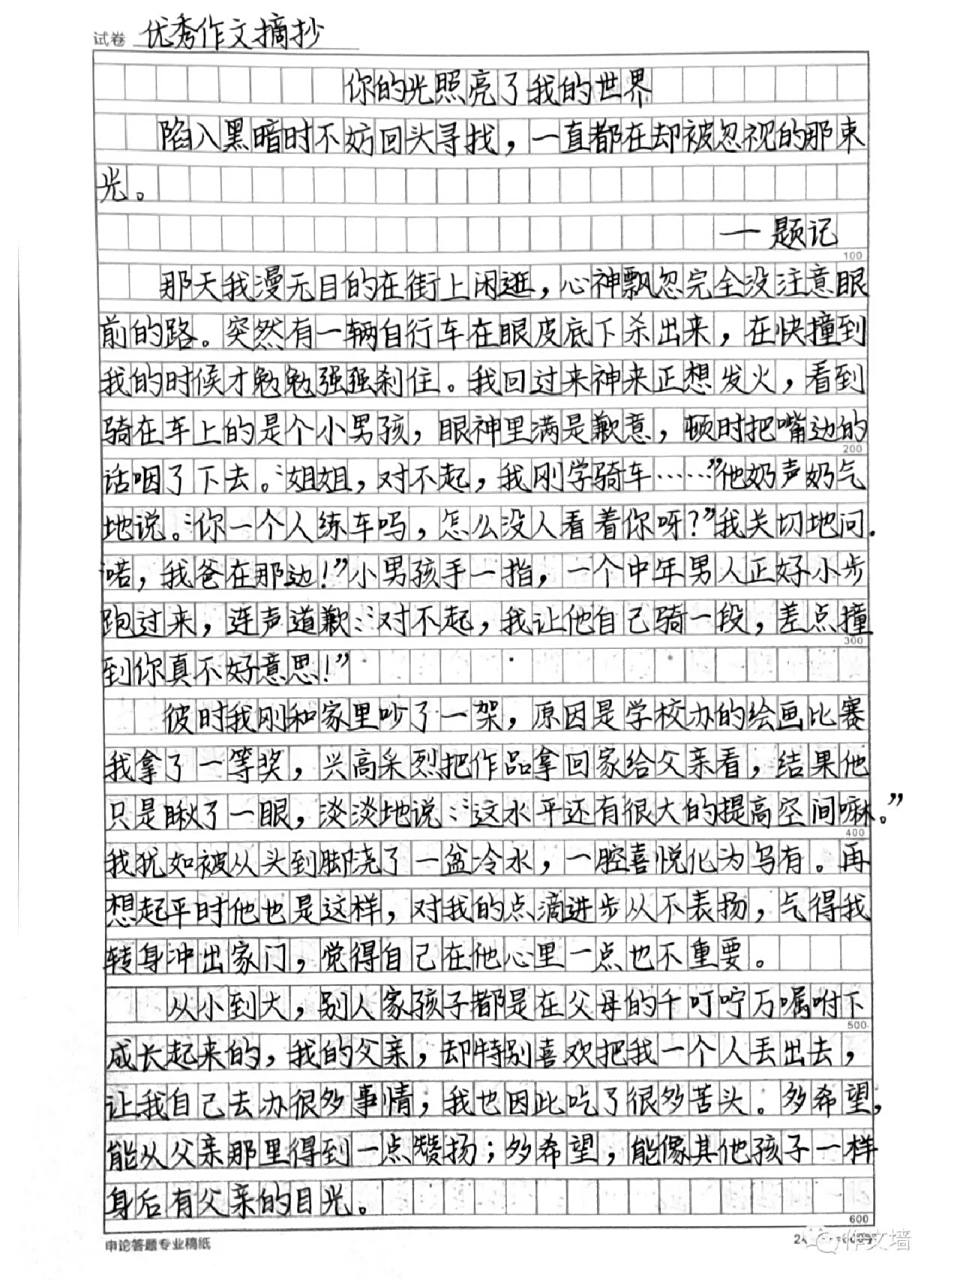 试卷 优秀作文摘抄
你的光照亮了我的世界
陷入黑暗时不妨回头寻找，一直都在却被忽视的那束
光。
—题记
100
那天我漫无目的在街上闲逛，心神飘忽完全没注意眼
前的路。突然有一辆自行车在眼皮底下杀出来，在快撞到
我的时候才勉勉强强刹住。我回过来神来正想发火，看到
骑在车上的是个小男孩，眼神里满是歉意，顿时把嘴边的
200
话咽了下去。“姐姐，对不起，我刚学骑车……”他奶声奶气
地说。“你一个人练车吗，怎么没人看着你呀？”我关切地问.
“喏，我爸在那边！”小男孩手一指，一个中年男人正好小步
跑过来，连声道歉：“对不起，我让他自己骑一段，差点撞
300
到你真不好意思！”
彼时我刚和家里吵了一架，原因是学校办的绘画比赛
我拿了一等奖，兴高采烈把作品拿回家给父亲看，结果他
只是瞅了一眼，淡淡地说：“这水平还有很大的提高空间嘛。”
400
我犹如被从头到脚浇了一盆冷水，一腔喜悦化为乌有。再
想起平时他也是这样，对我的点滴进步从不表扬，气得我
转身冲出家门，觉得自己在他心里一点也不重要。
从小到大，别人家孩子都是在父母的千叮咛万嘱咐下
500
成长起来的，我的父亲，却特别喜欢把我一个人丢出去，
让我自己去办很多事情，我也因此吃了很多苦头。多希望，
能从父亲那里得到一点赞扬；多希望，能像其他孩子一样
身后有父亲的目光。
600
申论答题专业稿纸
作文墙